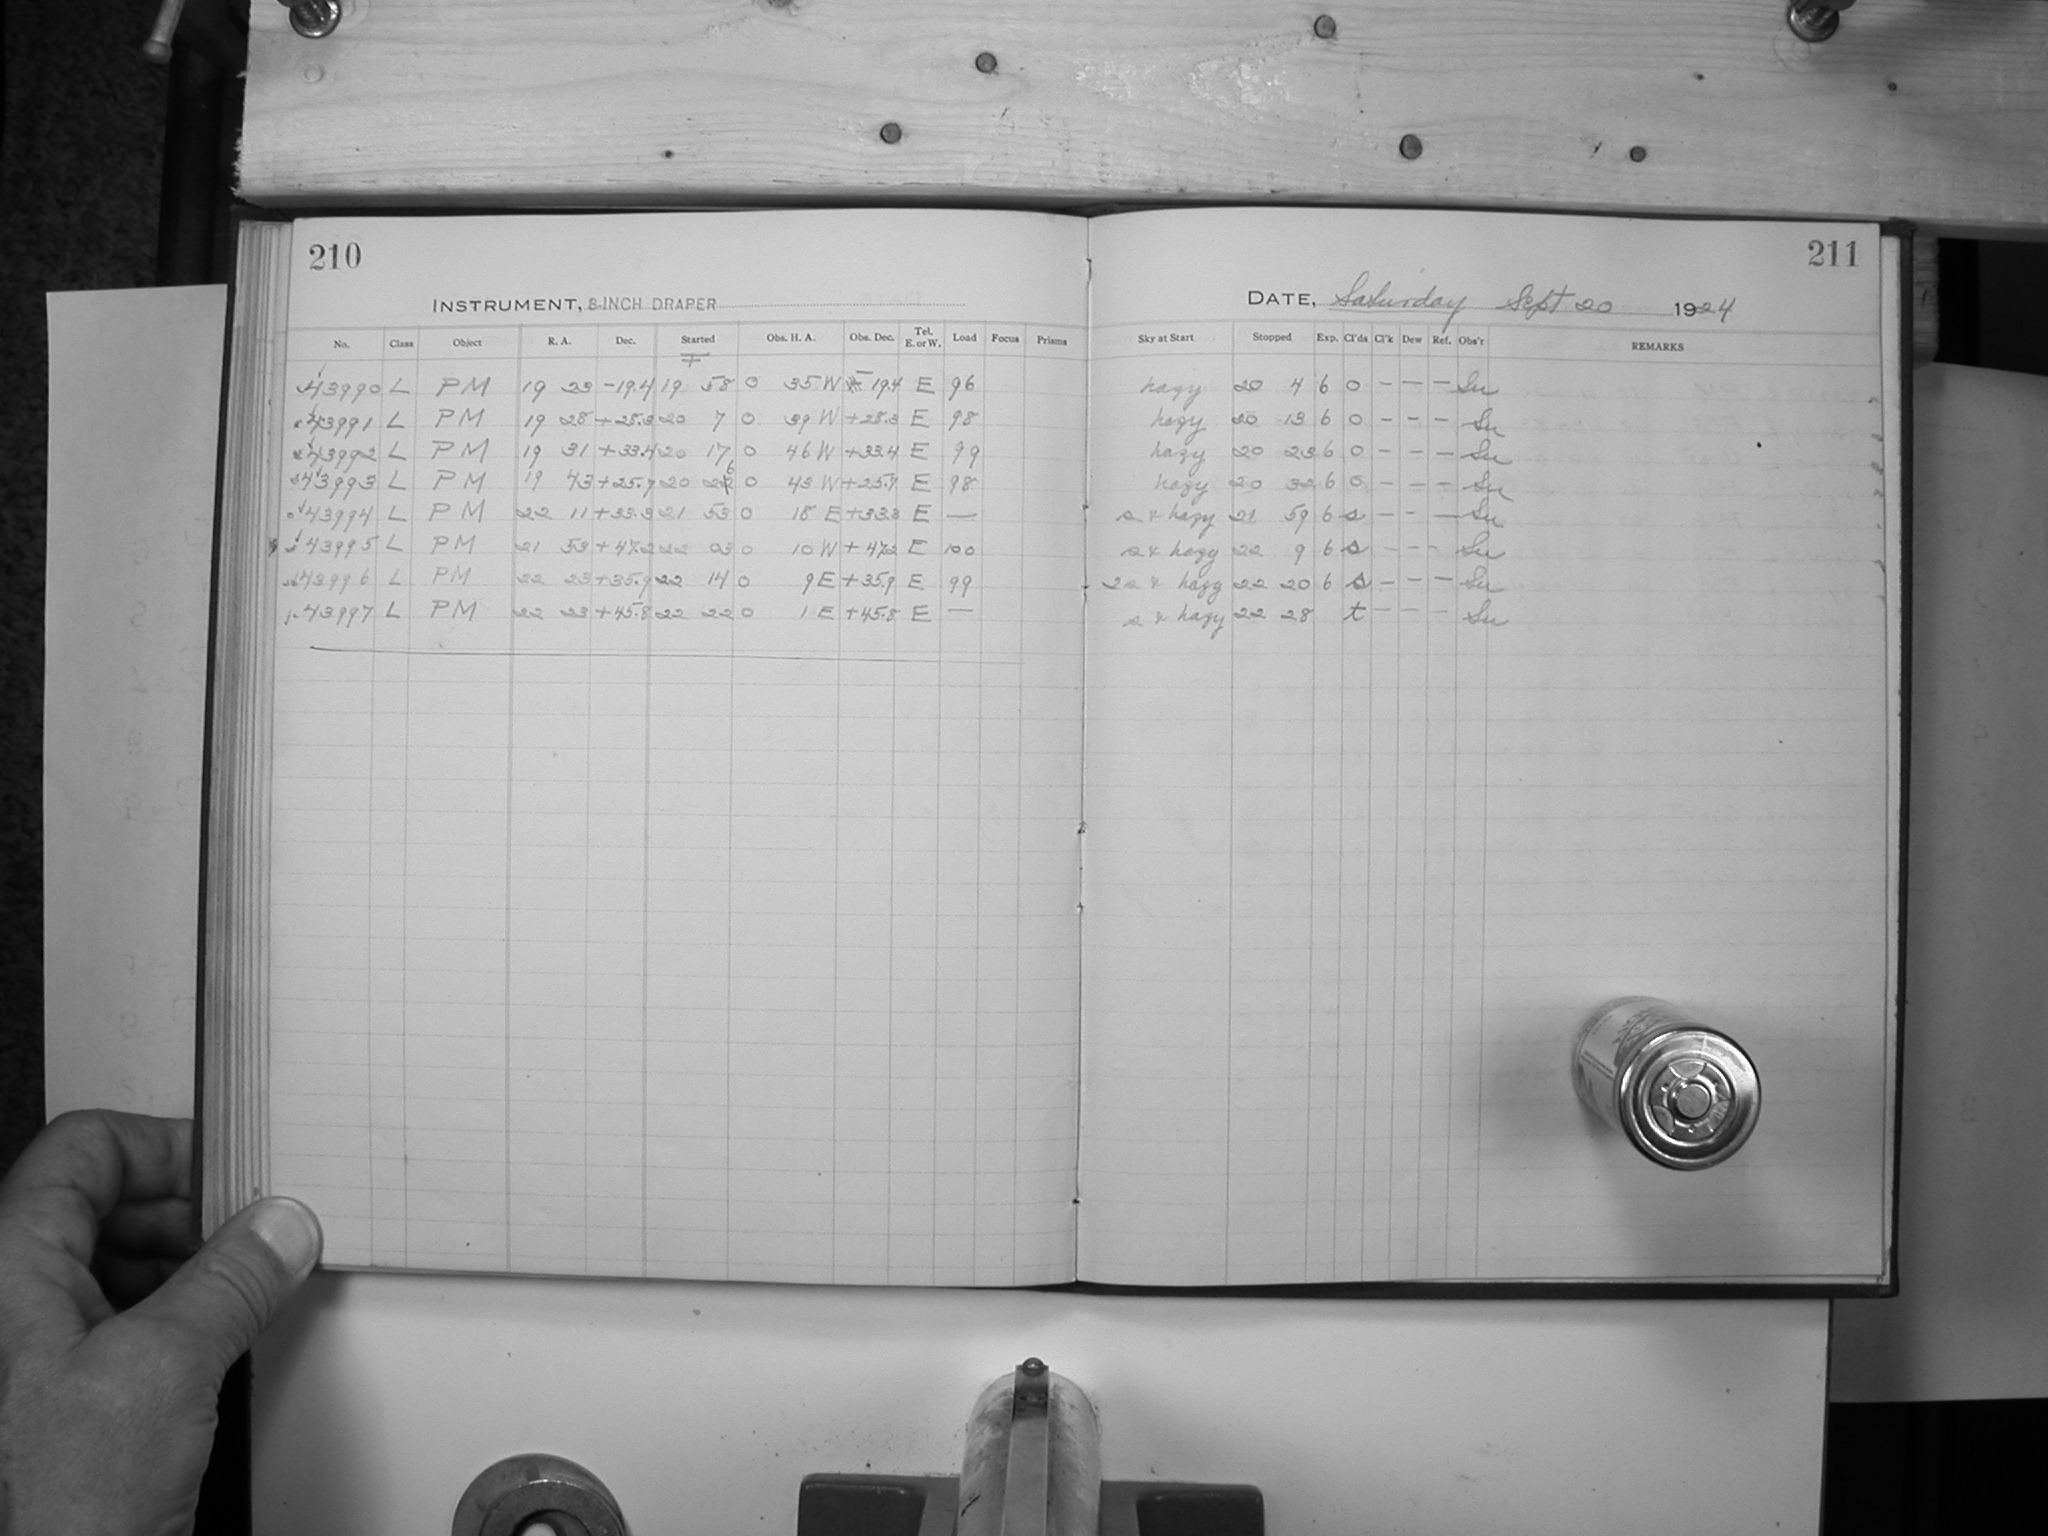 210
INSTRUMENT, 8-INCH DRAPER
No. Class Object R. A. Dec. Started Obs. H. A. Obs. Dec. Tel. E. or W. Load Focus Prisms
43990 L PM 19 23 -19.4 19 58 0 35 W -19.4 E 96
43991 L PM 19 28 +28.3 20 7 0 39 W +28.3 E 98
43992 L PM 19 31 +33.4 20 17 0 46 W +33.4 E 99
43993 L PM 19 43 +25.9 20 26 0 43 W +25.9 E 98
43994 L PM 22 11 +33.3 21 53 0 18 E +33.3 E —
43995 L PM 21 53 +47.2 22 03 0 10 W +47.2 E 100
43996 L PM 22 23 +35.9 22 14 0 9 E +35.9 E 99
43997 L PM 22 23 +45.8 22 22 0 1 E +45.8 E —
211
DATE, Saturday Sept 20 1924
Sky at Start Stopped Exp. Cl'ds Cl'k Dew Ref. Obs'r REMARKS
hazy 20 4 6 0 – – – Su
hazy 20 13 6 0 – – – Su
hazy 20 23 6 0 – – – Su
hazy 20 32 6 0 – – – Su
s & hazy 21 59 6 s – – – Su
s & hazy 22 9 6 s – – – Su
2s & hazy 22 20 6 s – – – Su
s & hazy 22 28 t – – – Su